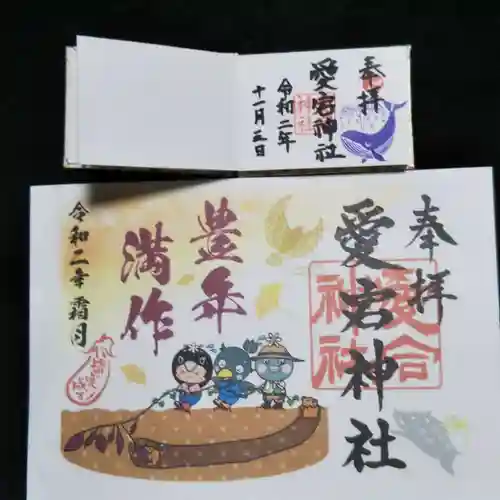 奉拝
愛宕神社
神社
令和二年
十一月三日
奉拝
愛宕神社
愛宕
神社
豊年
満作
令和二年霜月